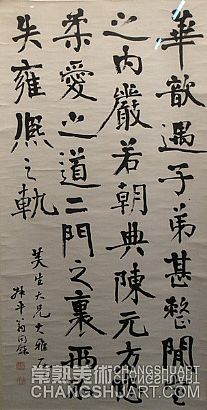 華歆遇子弟甚整閒室
之内嚴若朝典陳元方
柔愛之道二門之裏兩不
失雍熙之軌
美生大兄大雅
叔平翁同龢
常熟美術 CHANGSHUART
CHANGSHUART